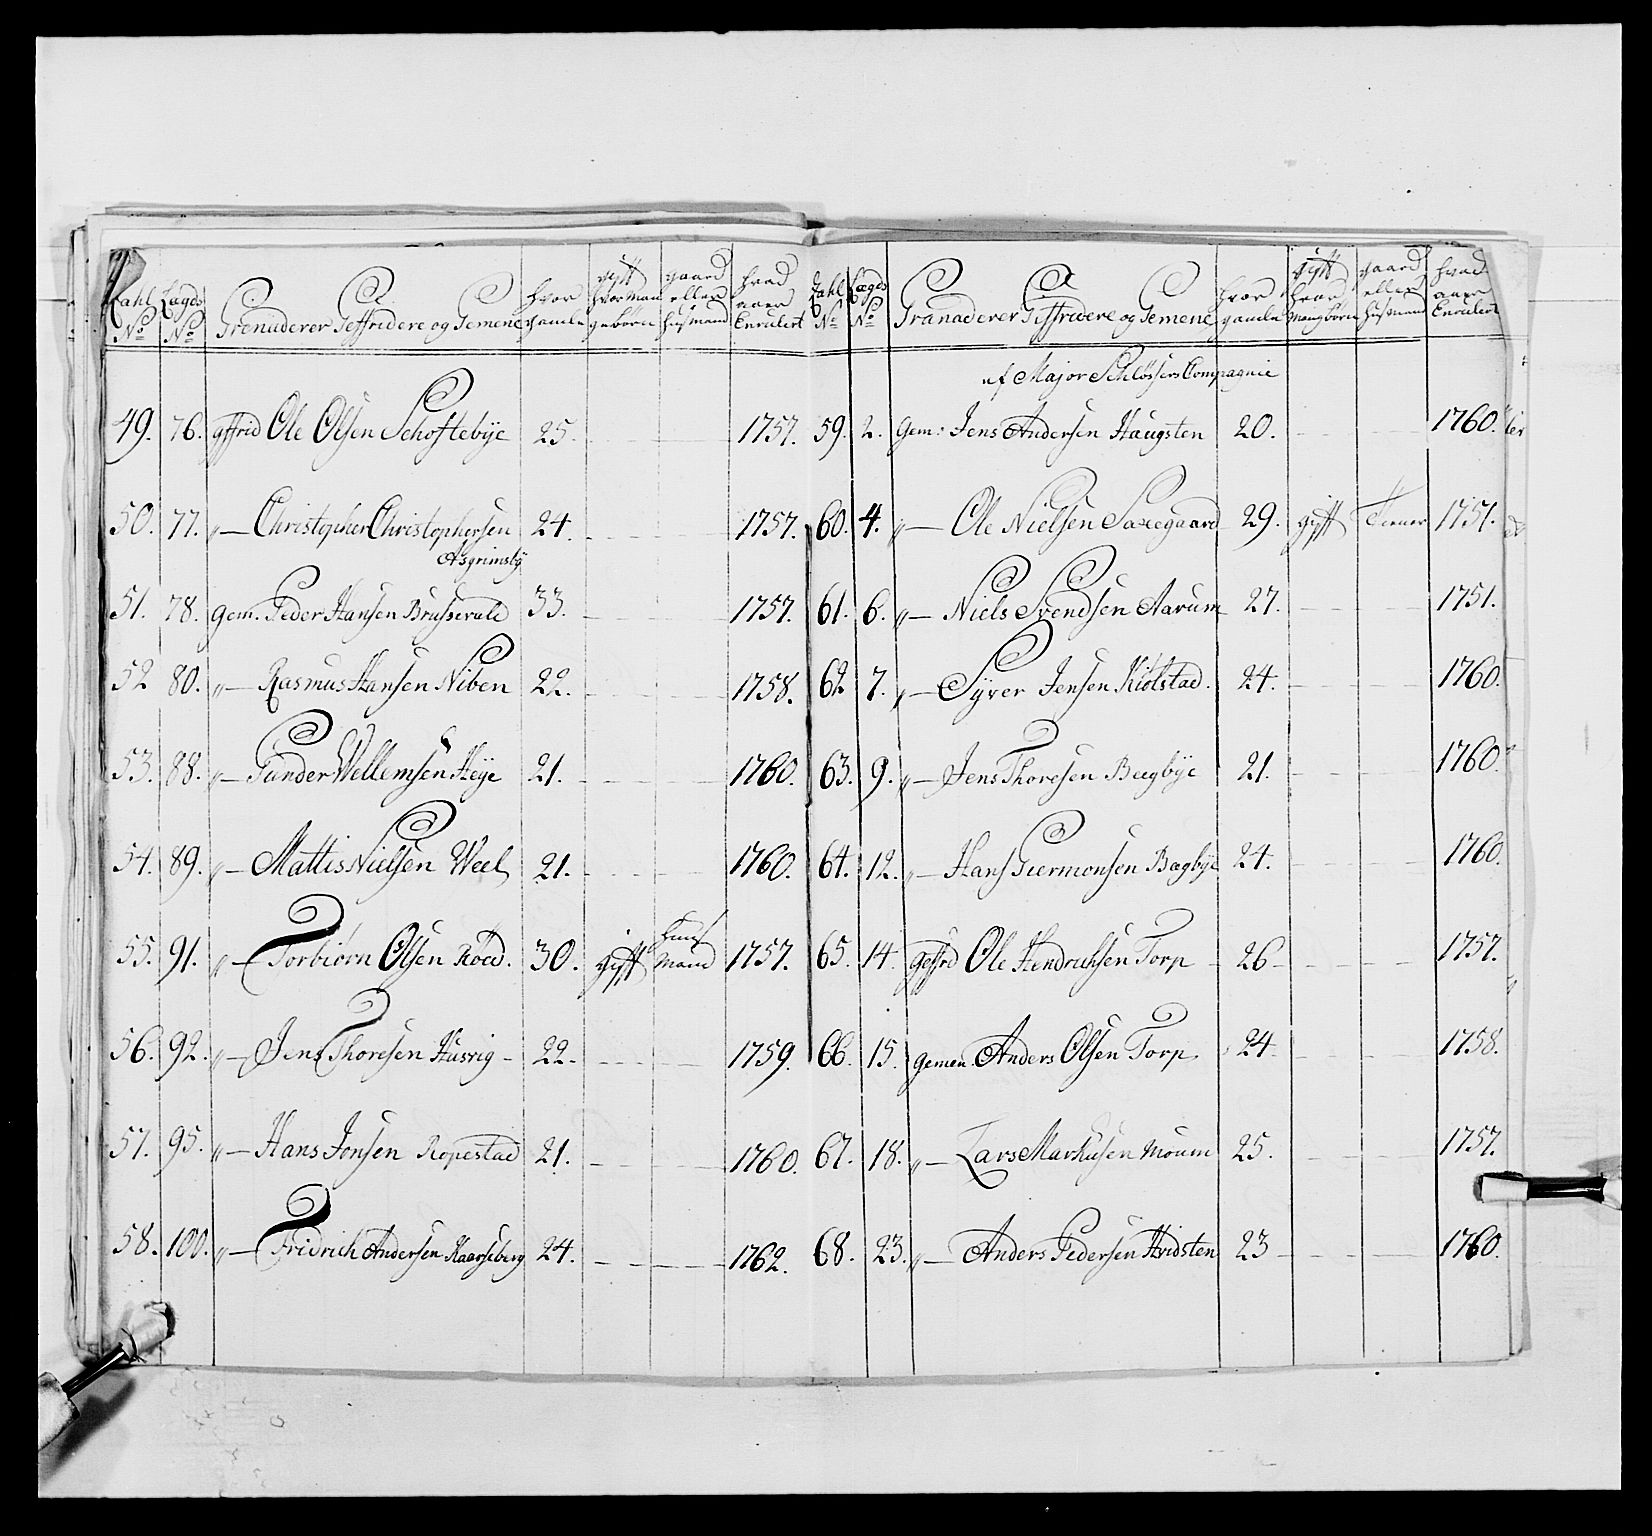 Zahl No
Lægds No
Grenaderer Geffridere og Gemene
hvor gamle
gyft hvor mange børn
gaard eller husmand
hvad aaer Enrulert
49. 76. gffrid Ole Olsen Schoftebÿe 25. 1757.
50. 77. „— Christopher Christophersen 24. 1757.
Asgrimsbÿ
51. 78. gem. Peder Hansen Brusserale 33. 1757.
52 80. „— Rasmus Hansen Niben 22. 1758.
53. 88. „— Gunder Wellemsen Heÿe 21. 1760.
54. 89. „— Mattis Nielsen Weel 21. 1760.
55. 91. „— Torbiørn Olsen Röed. 30. gifft huus mand 1757.
56. 92. „— Jens Thoresen Husvig 22. 1759.
57. 95. „— Hans Jonsen Ropestad 21. 1760.
58. 100. „— Fridrich Andersen Haarseberg 24. 1762.
Zahl No
Lægds No
Granaderer Giffridere og Gemene
hvor gamle
gyft hvor mang børn
gaard eller husmand
hvad aaer Enrulert
af Major Schlössers Compagnie
59. 2. Gem: Jens Andersen Haugsten 20. 1760.
60. 4. „— Ole Nielsen Saxegaard 29. gyft Tiener 1751.
61. 6. „— Niels Svendsen Aarum 27. 1751.
62 7. „— Sÿver Jensen Kiölstad. 24. 1760.
63. 9. „— Jens Thoresen Bugbÿe 21. 1760.
64. 12. „— Hans Giermonsen Bagbÿe 24. 1760.
65. 14. geffrd Ole Hendrichsen Torp 26 1757.
66. 15. gemen. Anders Olsen Torp 24 1758.
67. 18. „— Lars Markusen Moum 25. 1757.
68. 23. „— Anders Pedersen Hvidsten 23 1760.